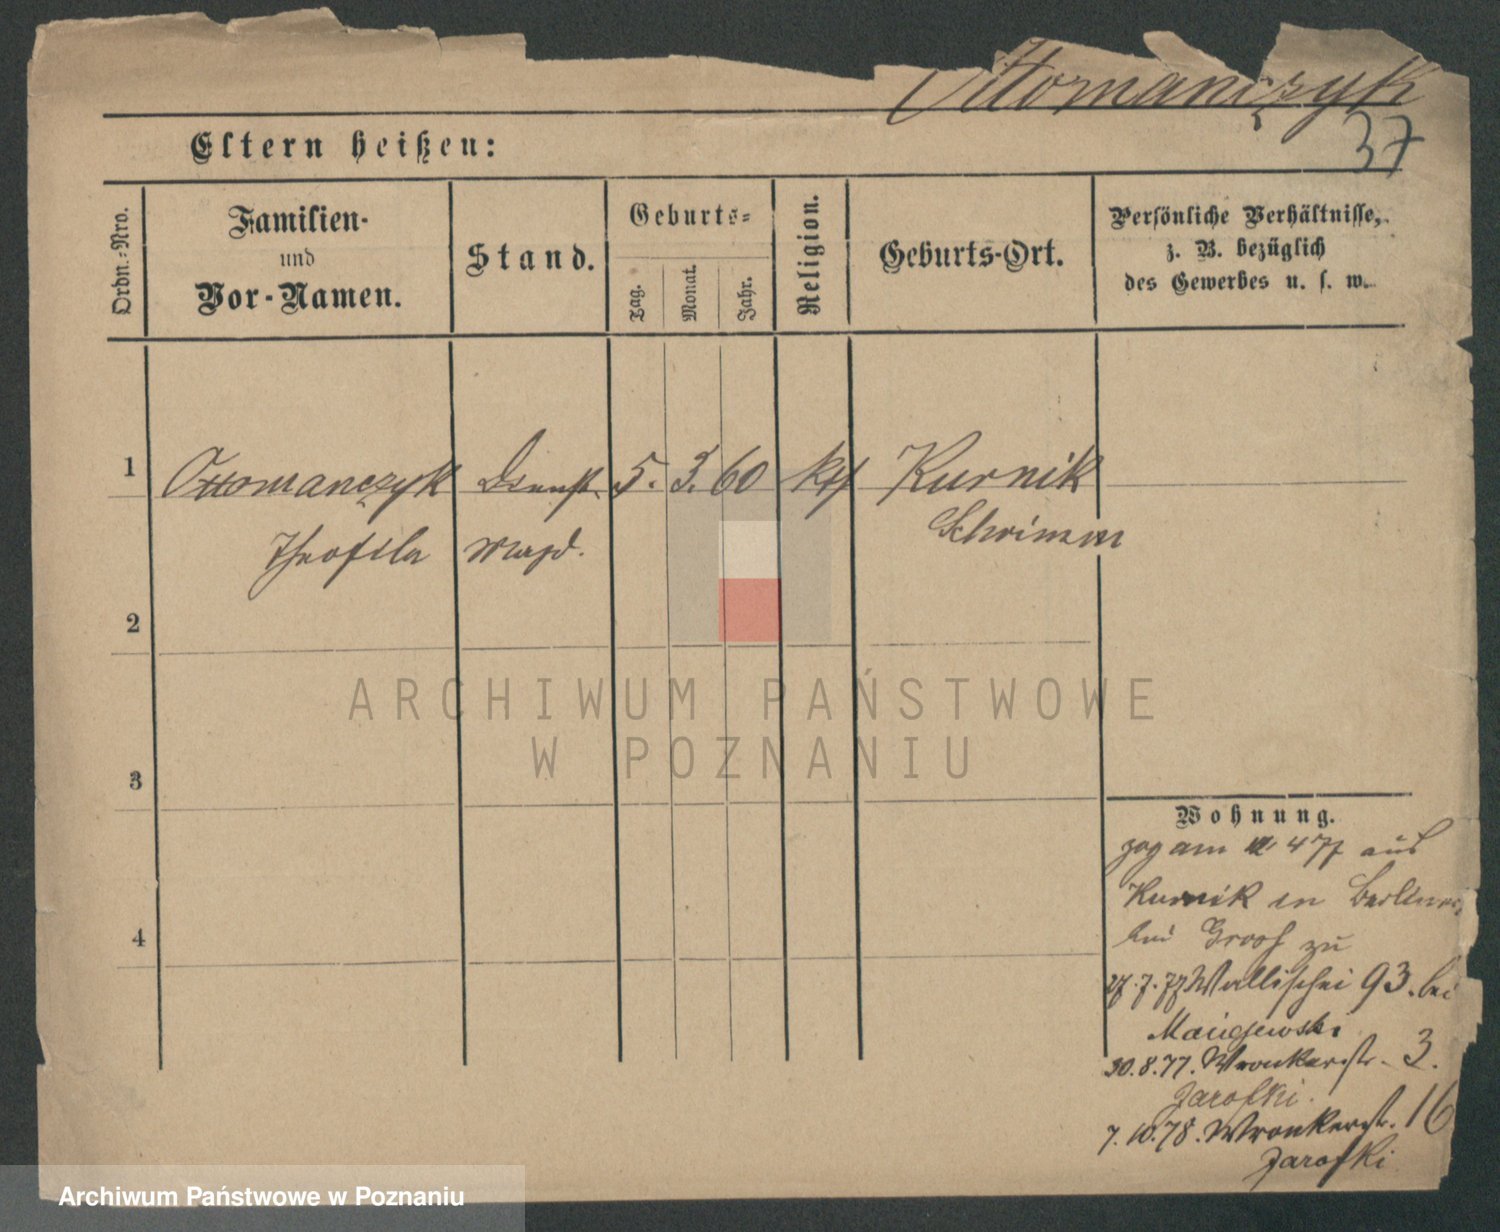 Ottomanczyk
37
Eltern heißen:
Ordn.-Nro.
Familien-
und
Vor-Namen.
Stand.
Geburts-
Tag.
Monat.
Jahr.
Religion.
Geburts-Ort.
Persönliche Verhältnisse,
z. B. bezüglich
des Gewerbes u. s. w.
1 Ottomanczyk Dienst 5. 3. 60 kth Kurnik
Theofila Magd. Schrimm
2
3
4
ARCHIWUM PAŃSTWOWE
W POZNANIU
Wohnung.
zog am 4 77 aus
Kurnik in
bei zu
27.7.77 Wallischei 93. bei
Maciejewski
30.8.77. Wronkerstr. 3.
Jarofki.
7.10.78. Wronkerstr. 16
Jarofki
Archiwum Państwowe w Poznaniu